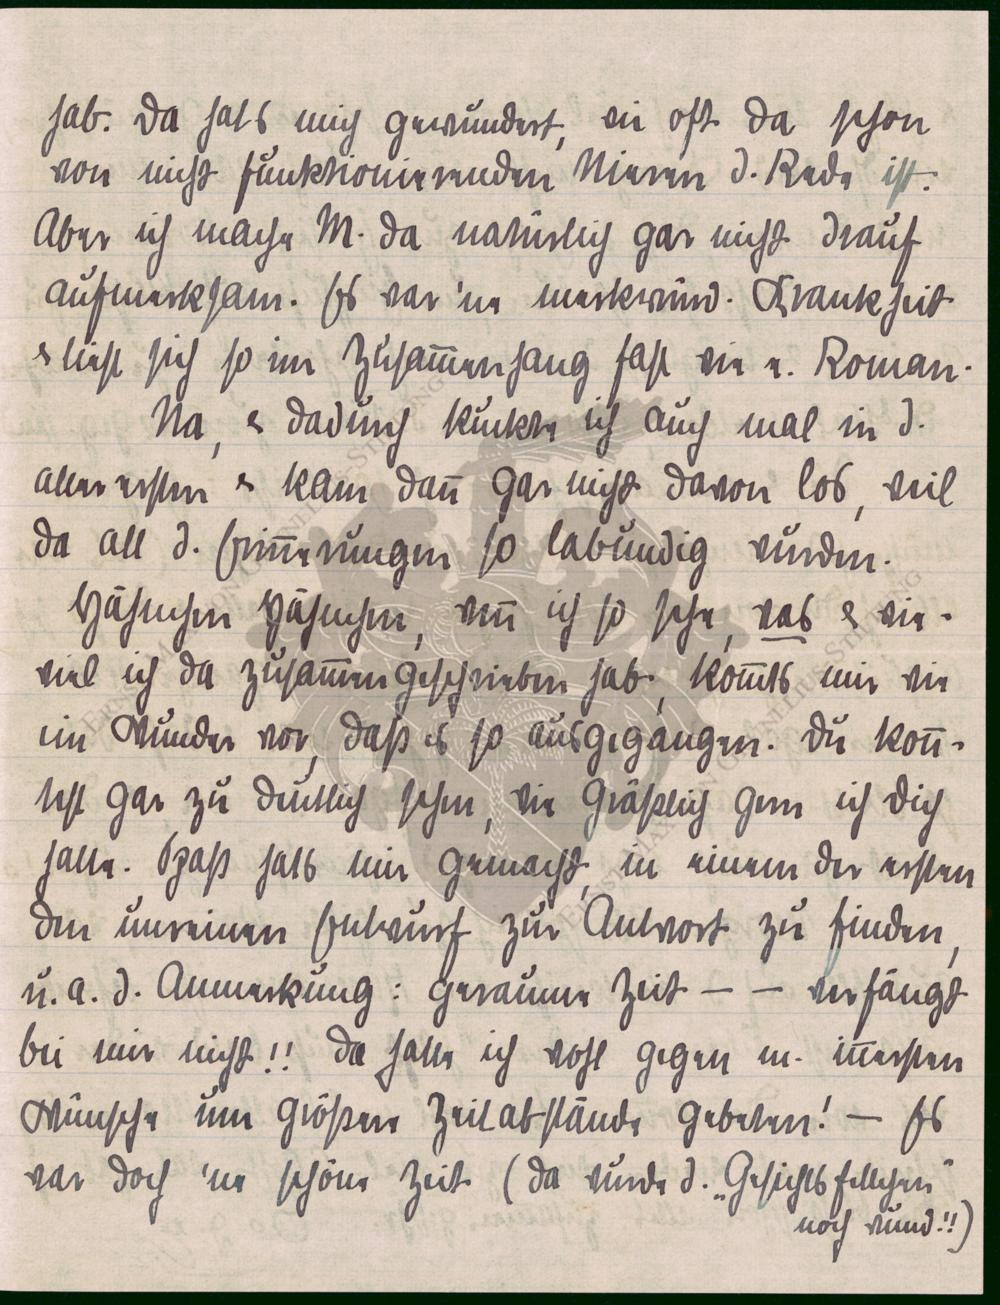 hab. Da hat's mich gewundert, wie oft da schon
von nicht funktionierenden Nieren d. Rede ist.
Aber ich mache M. da natürlich gar nicht drauf
aufmerksam. Es war 'ne merkwürd. Krankheit
& liest sich so im Zusam̅enhang fast wie e. Roman.
Na, & dadurch kuckte ich auch mal in d.
allerersten & kam dan̅ gar nicht davon los, weil
da all d. Erin̅erungen so lebendig wurden.
Hähnchen Hähnchen, wen̅ ich so sehe, was & wie-
viel ich da zusam̅engeschrieben hab, kom̅ts mir wie
ein Wunder vor, daß es so ausgegangen. Du kon̅-
test gar zu deutlich sehen, wie gräßlich gern ich Dich
hatte. Spaß hats mir gemacht, in einem der ersten
den unreinen Entwurf zur Antwort zu finden,
u. a. d. Anmerkung: geraume Zeit — — verfängt
bei mir nicht!! Da hatte ich wohl gegen m. in̅ersten
Wünsche um größere Zeitabstände gebeten! — Es
war doch 'ne schöne Zeit (da wurde d. „Gesichts
noch rund!!)
ERNST MARTIN CORNELIUS STIFTUNG